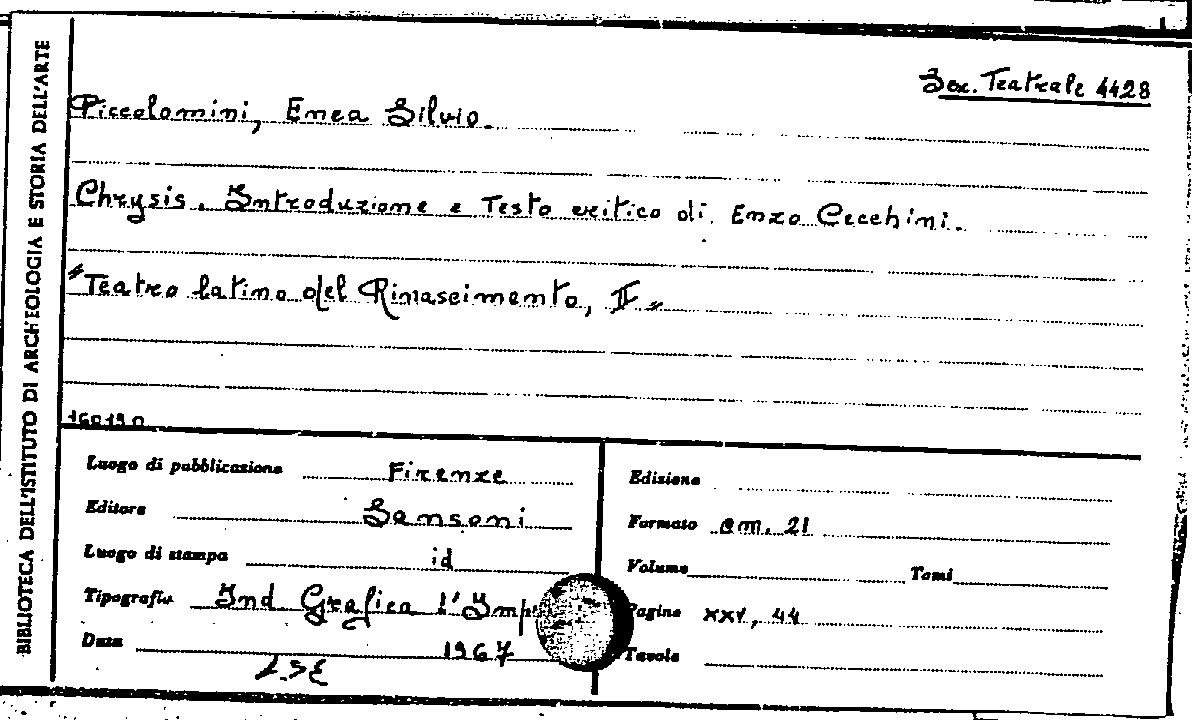 BIBLIOTECA DELL'ISTITUTO DI ARCHEOLOGIA E STORIA DELL'ARTE
Sez. Teatrale 4428
Piccolomini, Enea Silvio.
Chrysis. Introduzione e Testo critico di Enzo Cecchini.
"Teatro latino del Rinascimento, II"
160190
Luogo di pubblicazione Firenze
Editore Sansoni
Luogo di stampa id
Tipografia Ind Grafica l'Imp
Data 1967
Edizione
Formato cm. 21
Volume Tomi
Pagine XXV, 44
Tavole